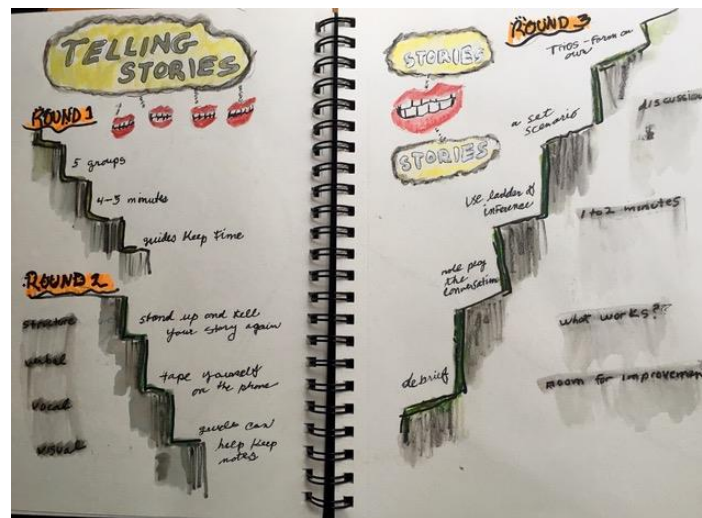 TELLING
STORIES
ROUND 1
5 groups
4-5 minutes
guides keep time
ROUND 2
stand up and tell
your story again
tape yourself
on the phone
guides can
help keep
notes
structure
verbal
vocal
visual
STORIES
STORIES
ROUND 3
TRIOS - form on
own
a set
scenario
use ladder of
inference
role play
the
conversation
debrief
discussion
1 to 2 minutes
what works??
room for improvemen